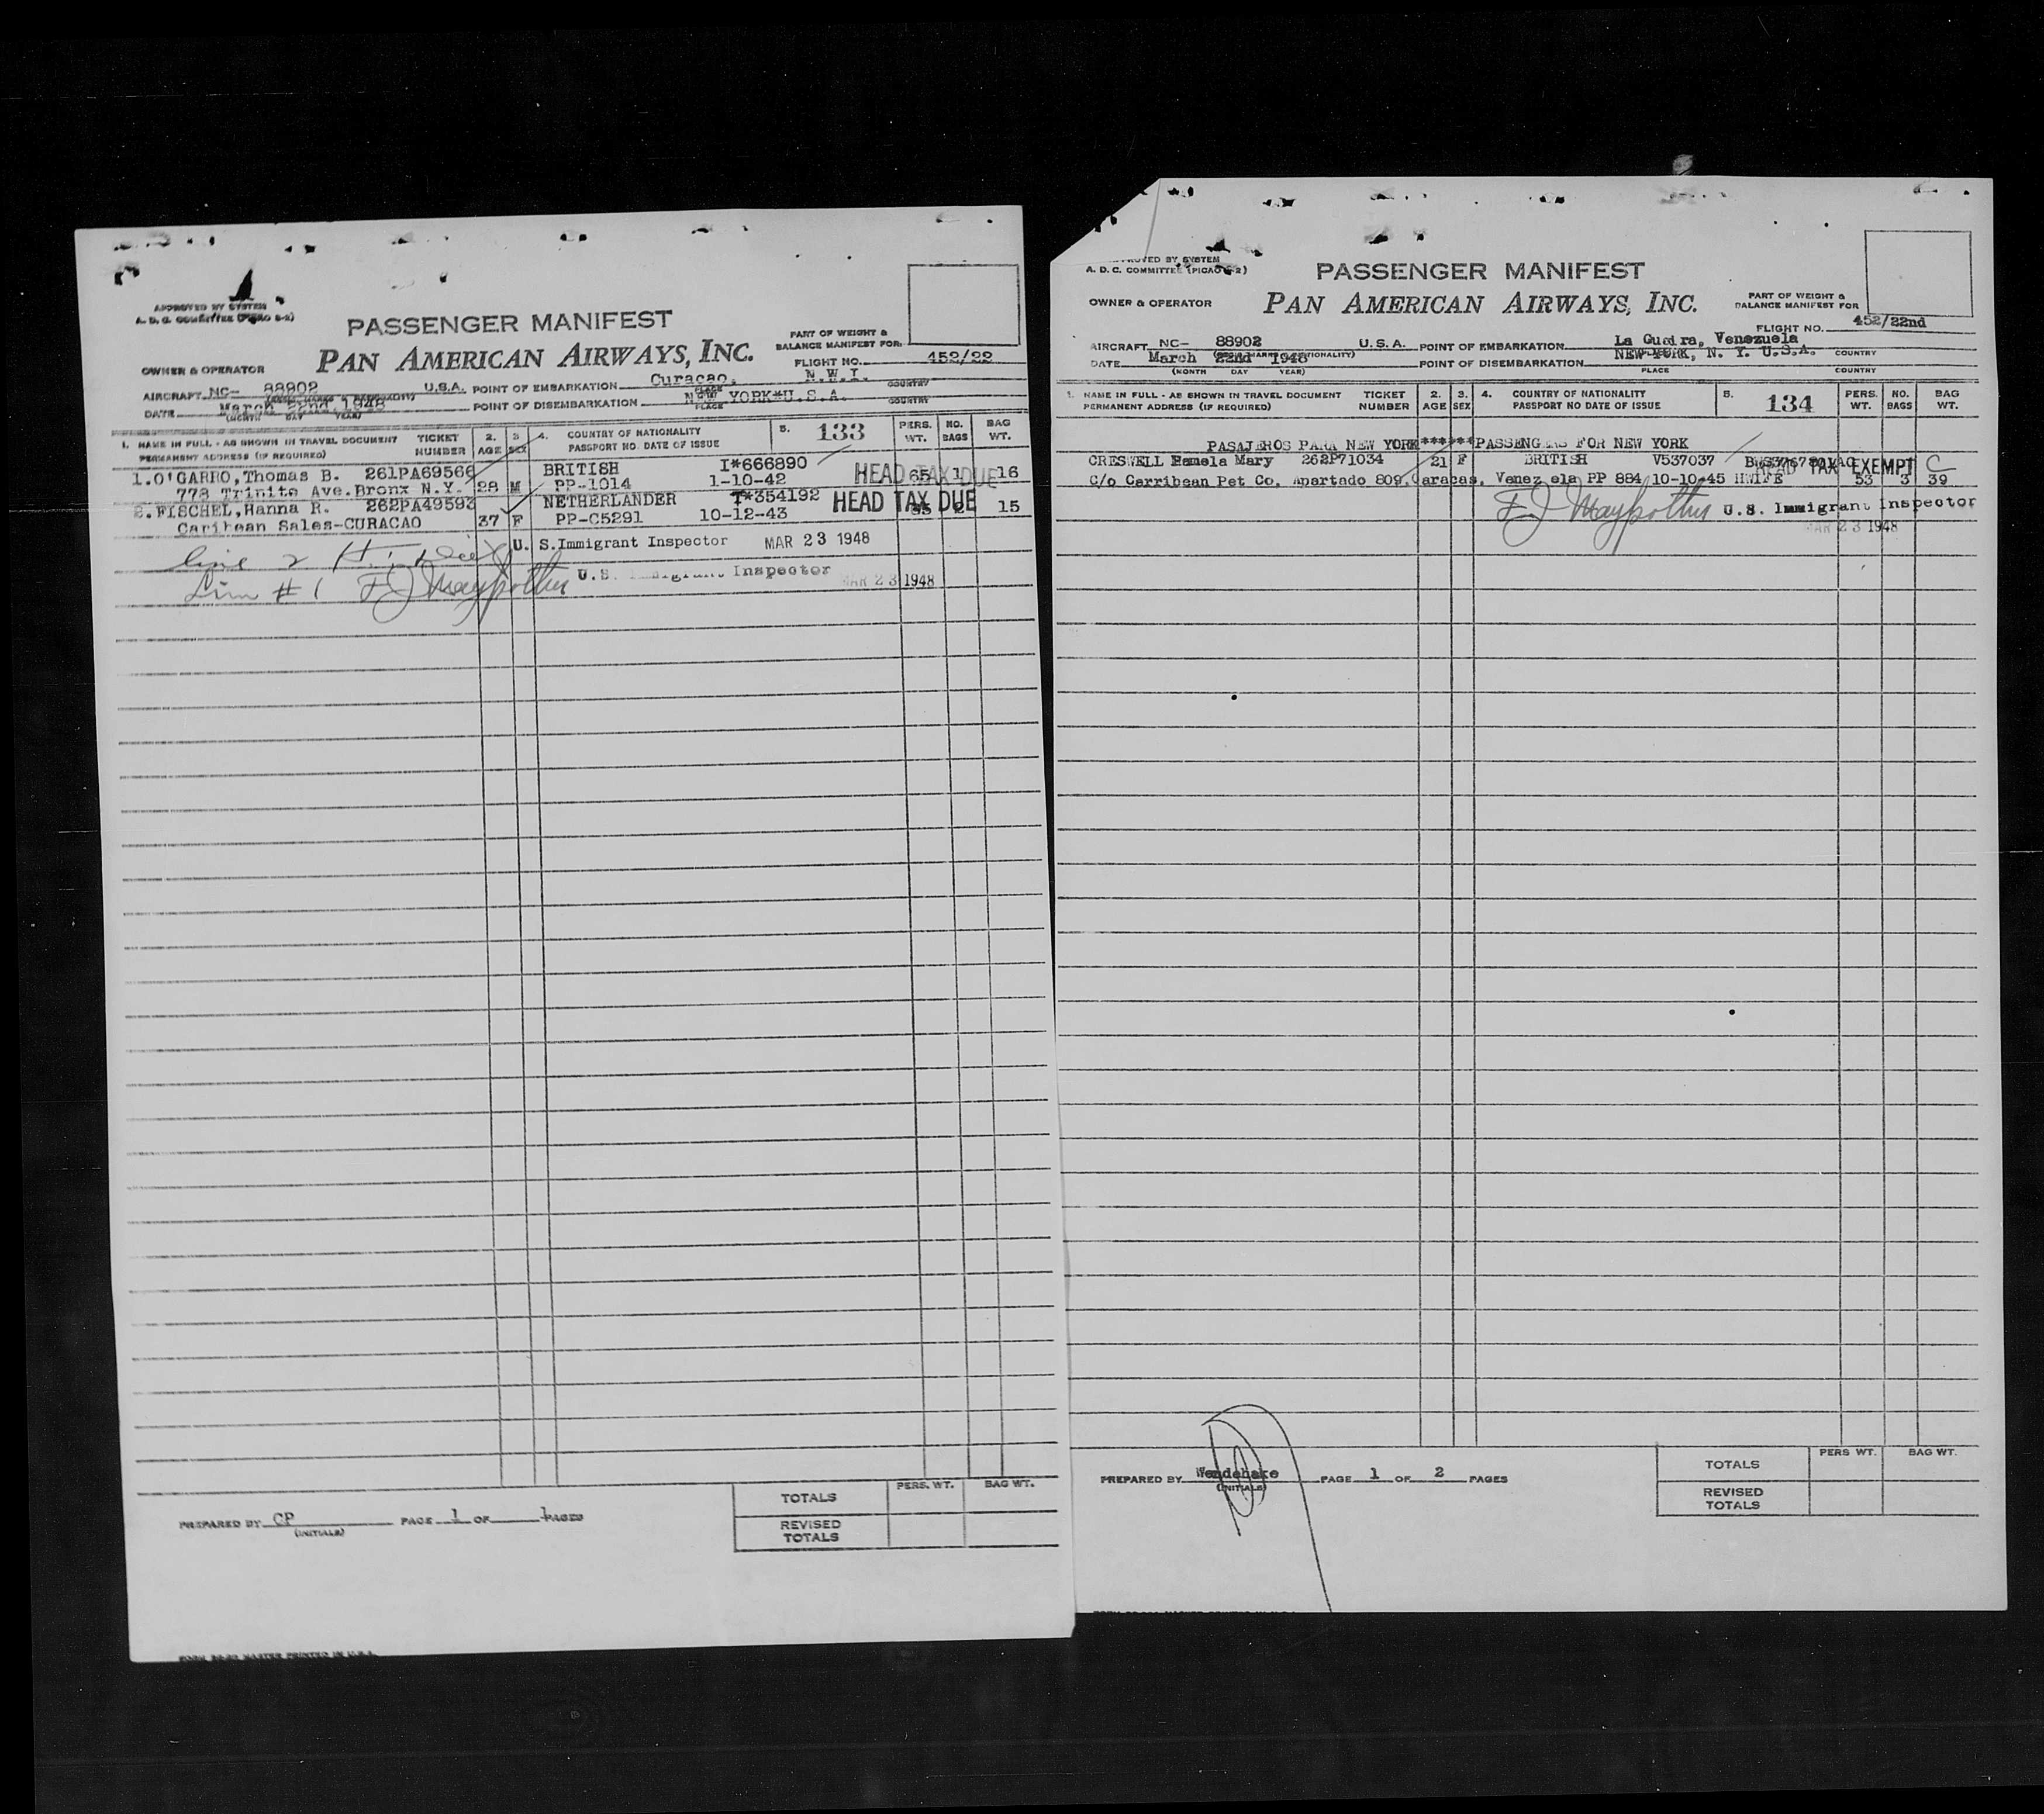 APPROVED BY SYSTEM
A. D. C. COMMITTEE (PICAO 2-2)
PASSENGER MANIFEST
PART OF WEIGHT &
BALANCE MANIFEST FOR
OWNER & OPERATOR
PAN AMERICAN AIRWAYS, INC.
FLIGHT NO. 452/22
AIRCRAFT NC- 88902 U.S.A. POINT OF EMBARKATION Curacao, N.W.I.
PLACE COUNTRY
DATE March 22nd, 1948 POINT OF DISEMBARKATION NEW YORK*U.S.A.
(MONTH DAY YEAR) PLACE COUNTRY
1. NAME IN FULL - AS SHOWN IN TRAVEL DOCUMENT TICKET 2. 3. 4. COUNTRY OF NATIONALITY 5. 133 PERS. NO. BAG
PERMANENT ADDRESS (IF REQUIRED) NUMBER AGE SEX PASSPORT NO. DATE OF ISSUE WT. BAGS WT.
1.O'GARRO,Thomas B. 261PA69566 BRITISH I*666890 HEAD TAX DUE
778 Trinite Ave.Bronx N.Y. 28 M PP-1014 1-10-42 65 1 16
2.FISCHEL,Hanna R. 262PA49593 NETHERLANDER T*354192 HEAD TAX DUE
Caribean Sales-CURACAO 37 F PP-C5291 10-12-43 15
line 2 U. S. Immigrant Inspector MAR 23 1948
Line # 1 F J Maypother U.S. Immigrant Inspector MAR 23 1948
TOTALS PERS. WT. BAG WT.
PREPARED BY CP PAGE 1 OF 1 PAGES
(INITIALS)
REVISED
TOTALS
APPROVED BY SYSTEM
A. D. C. COMMITTEE (PICAO 2-2)
PASSENGER MANIFEST
OWNER & OPERATOR
PAN AMERICAN AIRWAYS, INC.
PART OF WEIGHT &
BALANCE MANIFEST FOR
FLIGHT NO. 452/22nd
AIRCRAFT NC- 88902 U.S.A. POINT OF EMBARKATION La Guaira, Venezuela
DATE March 22nd 1948 POINT OF DISEMBARKATION NEW YORK, N. Y. U.S.A. COUNTRY
(MONTH DAY YEAR) PLACE COUNTRY
1. NAME IN FULL - AS SHOWN IN TRAVEL DOCUMENT TICKET 2. 3. 4. COUNTRY OF NATIONALITY 5. 134 PERS. NO. BAG
PERMANENT ADDRESS (IF REQUIRED) NUMBER AGE SEX PASSPORT NO DATE OF ISSUE WT. BAGS WT.
PASAJEROS PARA NEW YORK******PASSENGERS FOR NEW YORK
CRESWELL Pamela Mary 262P71034 21 F BRITISH V537037 HEAD TAX EXEMPT C
C/o Carribean Pet Co. apartado 809.Caracas, Venez ela PP 884 10-10-45 HWIFE 53 3 39
F J Maypother U.S. Immigrant Inspector
MAR 23 1948
PERS WT. BAG WT.
TOTALS
PREPARED BY Wendehake PAGE 1 OF 2 PAGES
(INITIALS)
REVISED
TOTALS